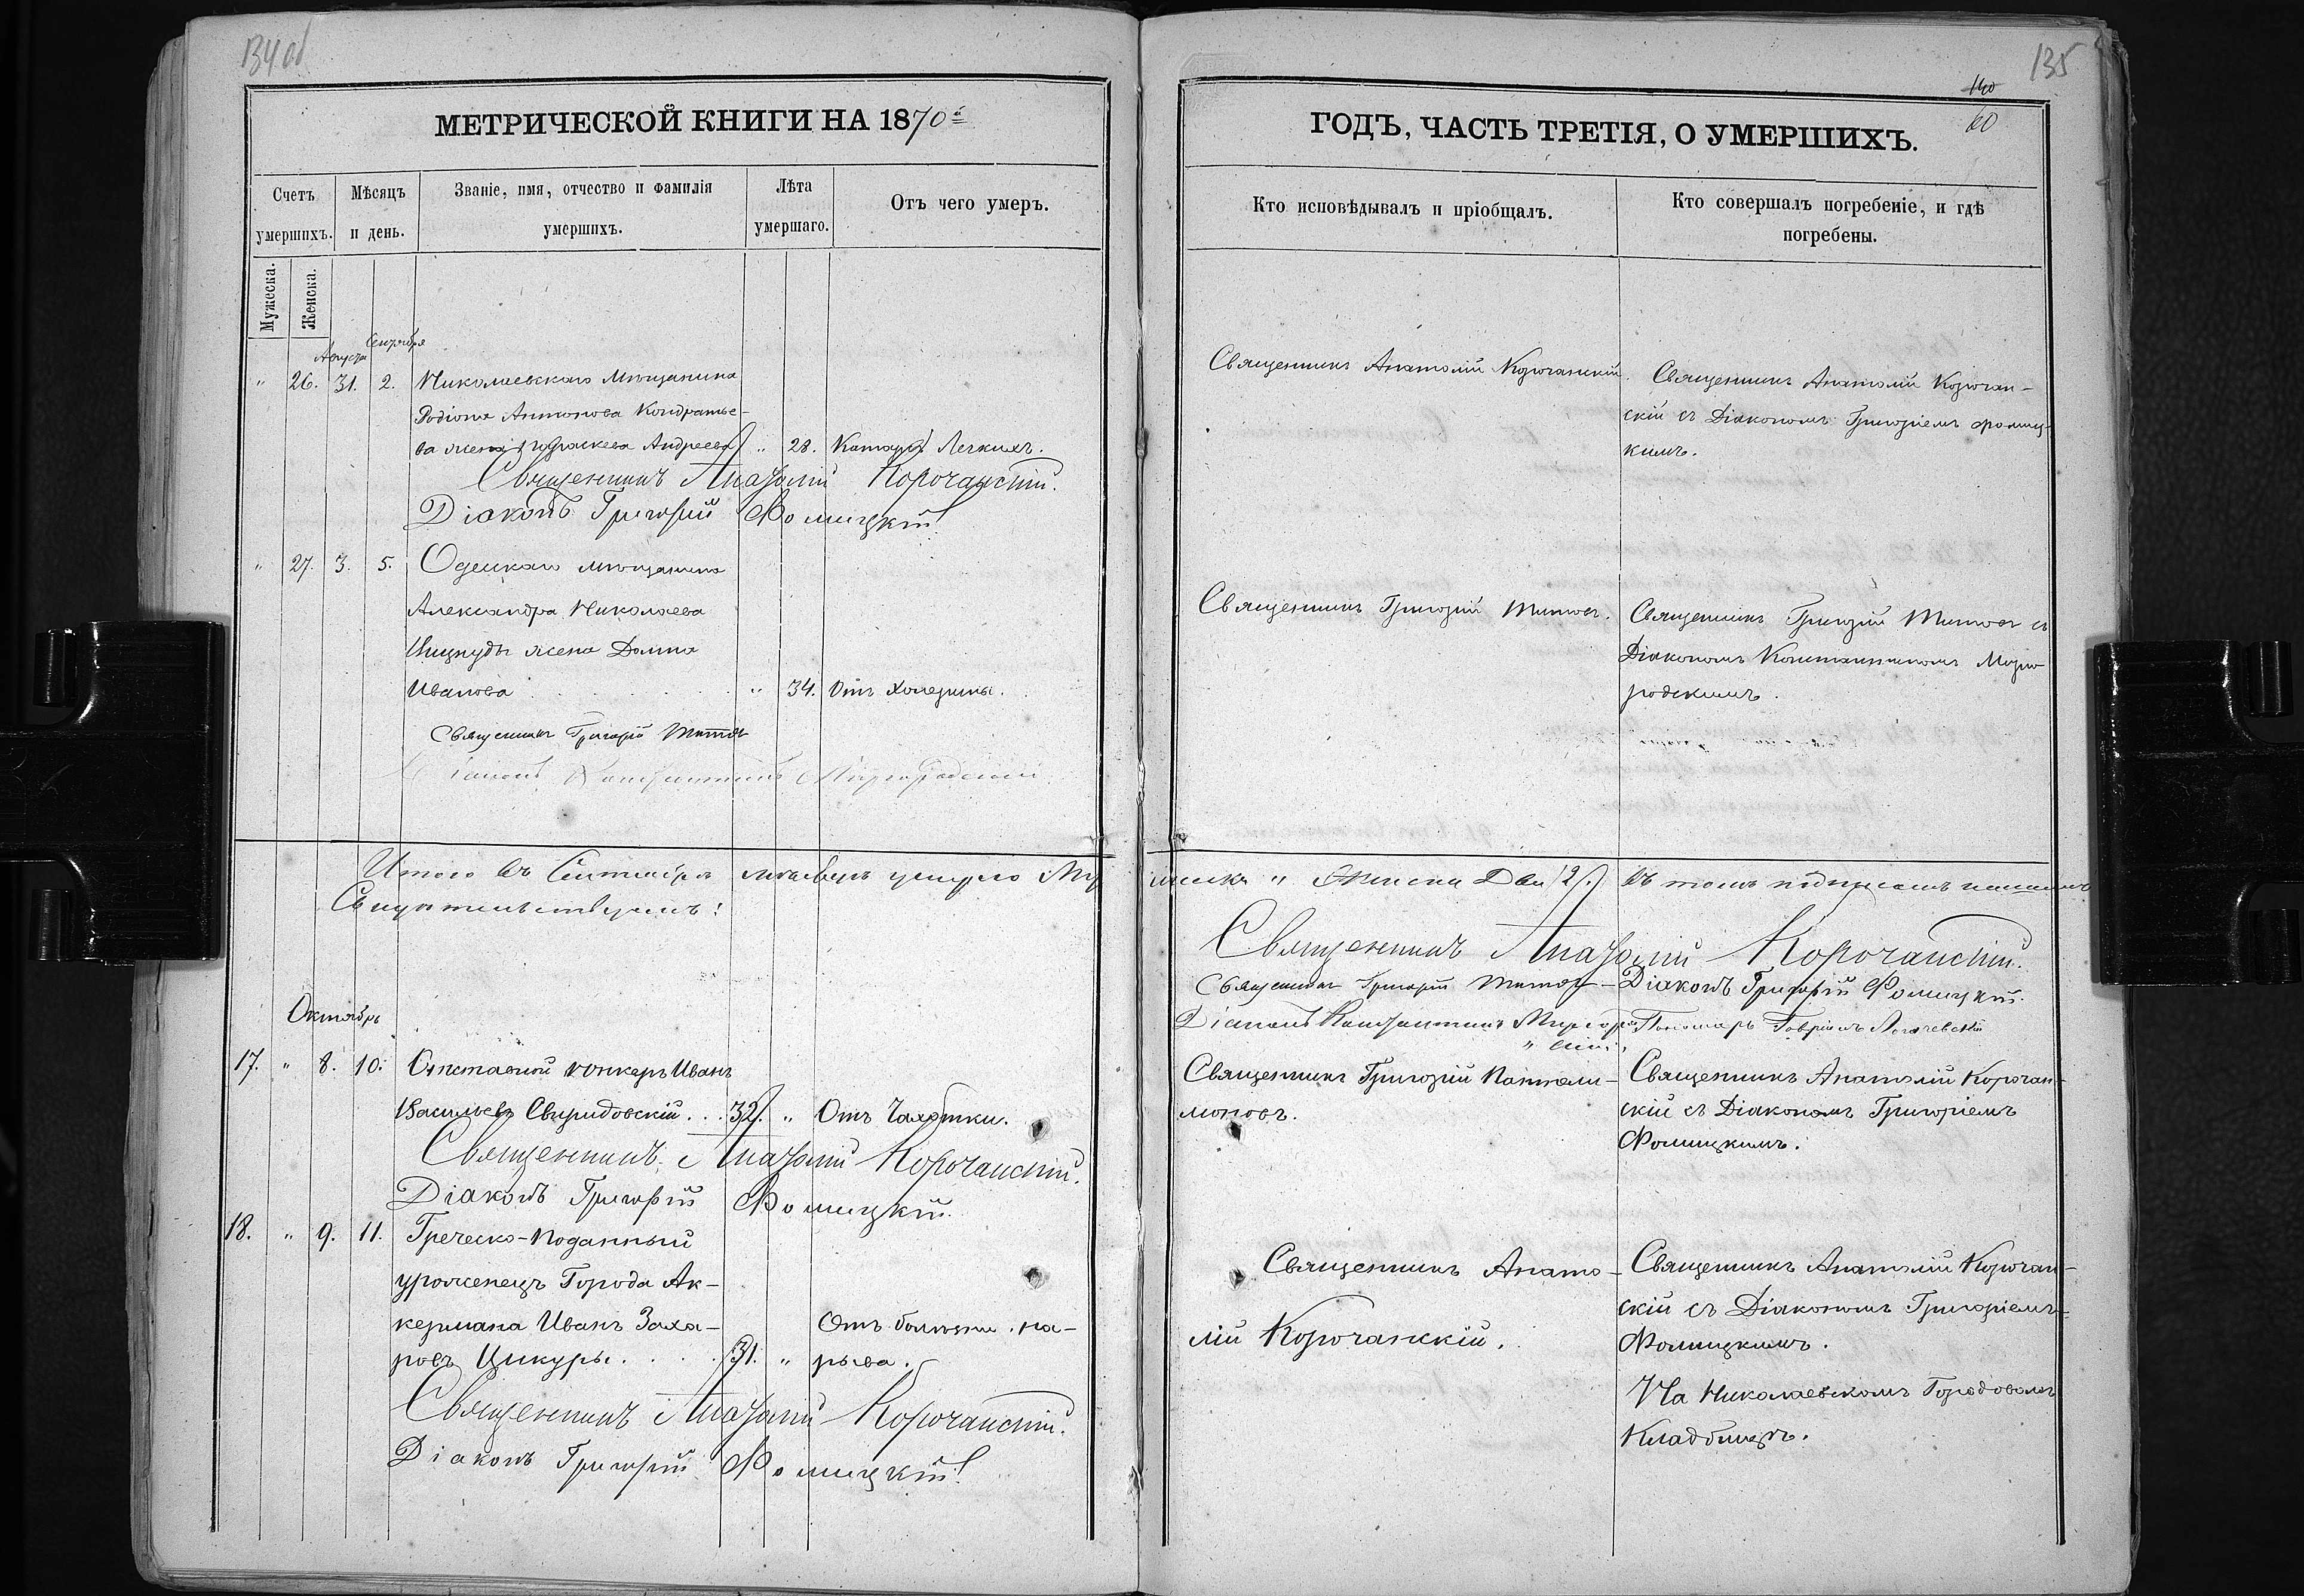 134об
МЕТРИЧЕСКОЙ КНИГИ НА 1870й
Счетъ умершихъ.
Мѣсяцъ и день.
Званіе, имя, отчество и фамилія умершихъ.
Лѣта умершаго.
Отъ чего умеръ.
Мужеска.
Женска.
Августа Сентября
" 26. 31. 2. Николаевскаго Мѣщанина
Родіона Антонова Кондратье-
ва жена Параскева Андреева " 28. Катара Легкихъ.
Священникъ Анатолій Корочанскій.
Діаконъ Григорій Фомицкій
" 27. 3. 5. Одескаго мѣщанина
Александра Николаева
жена Домна
Иванова " 34. Отъ Холерины.
Священникъ Григорій Титовъ
Діаконъ Константинъ Миргородскій
Итого въ Сентябрѣ мѣсяцѣ умерло Му
Свидѣтельствуемъ:
Октябрь
17. " 8. 10. Отставной Юнкеръ Иванъ
Васильевъ Свиридовскій... 32. " Отъ Чахотки.
Священникъ Анатолій Корочанскій.
Діаконъ Григорій Фомицкій.
18. " 9. 11. Греческо-Поданный
уроженецъ Города Ак-
кермана Иванъ Заха- Отъ болѣзни на-
ровъ Цикуры.... 31. " рыва.
Священникъ Анатолій Корочанскій.
Діаконъ Григорій Фомицкій
135
140
60
ГОДЪ, ЧАСТЬ ТРЕТІЯ, О УМЕРШИХЪ.
Кто исповѣдывалъ и пріобщалъ.
Кто совершалъ погребеніе, и гдѣ
погребены.
Священникъ Анатолій Корочанскій. Священникъ Анатолій Корочан-
скій съ Діакономъ Григоріемъ Фомиц-
кимъ.
Священникъ Григорій Титовъ. Священникъ Григорій Титовъ съ
Діакономъ Константиномъ Мирго
родскимъ.
жеска " Женска Два /2/. Въ томъ подписомъ
Священникъ Анатолій Корочанскій.
Священникъ Григорій Титовъ - Діаконъ Григорій Фомицкій.
Діаконъ Константинъ Миргород Пономарь Гавріилъ
" скій.
Священникъ Григорій Пантели- Священникъ Анатолій Корочан-
моновъ. скій съ Діакономъ Григоріемъ
Фомицкимъ.
Священникъ Анато- Священникъ Анатолій Корочан-
скій съ Діакономъ Григоріемъ
лій Корочанскій. Фомицкимъ.
На Николаевскомъ Городовомъ
Кладбищѣ.